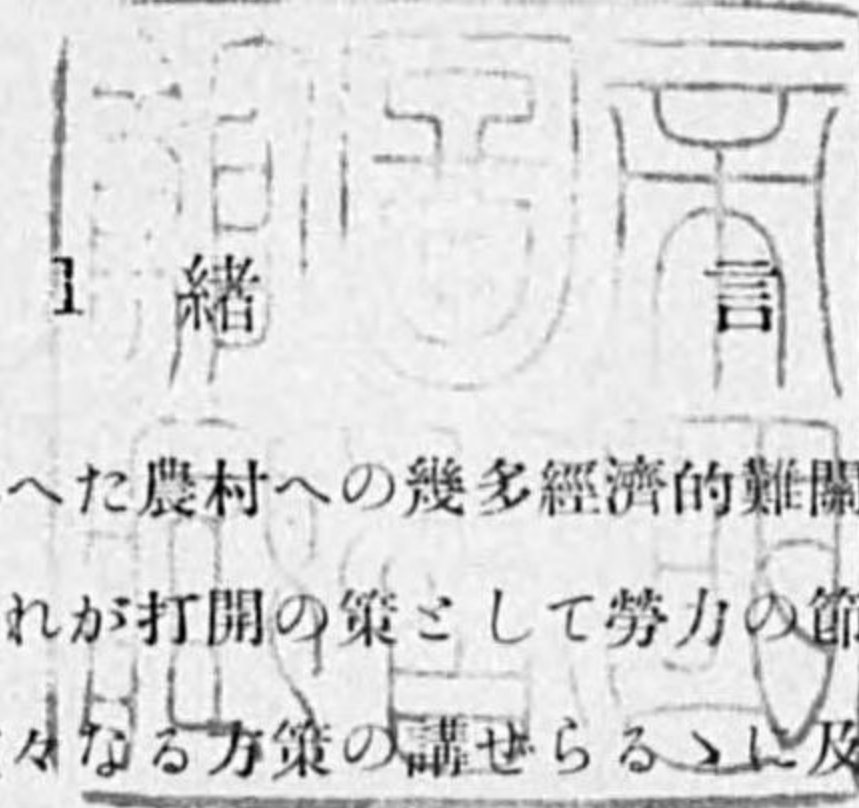 1 緒言
へた農村への幾多經濟的難關
れが打開の策として勞力の節
々なる方策の講ぜらるゝに及